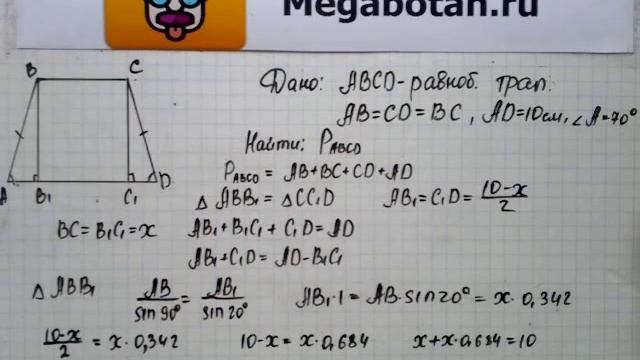 Megabotan.ru
Дано: ABCD - равноб. трап.
AB = CD = BC, AD = 10 см, ∠A = 70°
Найти: P ABCD
P ABCD = AB + BC + CD + AD
B C
A B₁ C₁ D
△ ABB₁ = △ CC₁D AB₁ = C₁D = (10-x)/2
BC = B₁C₁ = x AB₁ + B₁C₁ + C₁D = AD
AB₁ + C₁D = AD - B₁C₁
△ ABB₁ AB/sin 90° = AB₁/sin 20° AB₁ · 1 = AB · sin 20° = x · 0,342
(10-x)/2 = x · 0,342 10-x = x · 0,684 x + x · 0,684 = 10